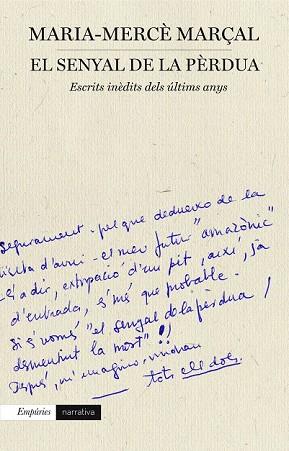 MARIA-MERCÈ MARÇAL
EL SENYAL DE LA PÈRDUA
Escrits inèdits dels últims anys
Segurament - pel que dedueixo de la
visita d'avui - el meu futur "amazònic"
-és a dir, extirpació d'un pit, així, ja
d'entrada, s'més que probable.
Si és només "el senyal de la pèrdua,
desmentint la mort"!!
Després, m'imagino, vindran
tots ells dols.
Empúries
narrativa